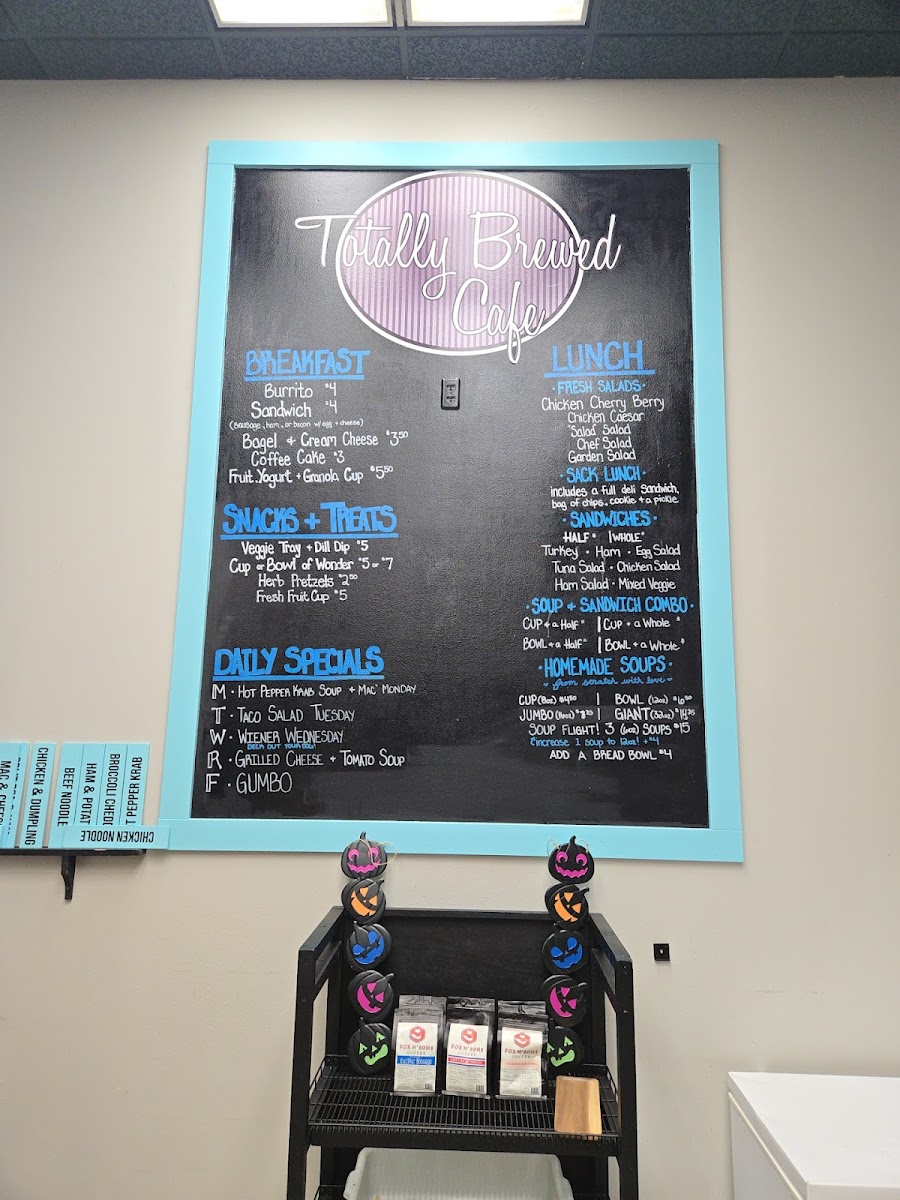 Totally Brewed
Cafe
BREAKFAST
Burrito $4
Sandwich $4
(sausage, ham, or bacon w/ egg + cheese)
Bagel + Cream Cheese $3.50
Coffee Cake $3
Fruit, Yogurt + Granola Cup $5.50
SNACKS + TREATS
Veggie Tray + Dill Dip $5
Cup or Bowl of Wonder $5 or $7
Herb Pretzels $2.50
Fresh Fruit Cup $5
DAILY SPECIALS
M · HOT PEPPER KRAB SOUP + MAC' MONDAY
T · TACO SALAD TUESDAY
W · WIENER WEDNESDAY
DECK OUT YOUR DOG!
R · GRILLED CHEESE + TOMATO SOUP
F · GUMBO
LUNCH
· FRESH SALADS ·
Chicken Cherry Berry
Chicken Caesar
"Salad" Salad
Chef Salad
Garden Salad
· SACK LUNCH ·
includes a full deli sandwich,
bag of chips, cookie + a pickle
· SANDWICHES ·
HALF | WHOLE
Turkey · Ham · Egg Salad
Tuna Salad · Chicken Salad
Ham Salad · Mixed Veggie
· SOUP + SANDWICH COMBO ·
CUP + a Half | CUP + a Whole
BOWL + a Half | BOWL + a Whole
· HOMEMADE SOUPS ·
from scratch with love
CUP (8oz) | BOWL (12oz)
JUMBO | GIANT (32oz)
SOUP FLIGHT! 3 (6oz) SOUPS $15
increase 1 soup to 12oz! +$4
ADD A BREAD BOWL $4
MAC & CHEESE
CHICKEN & DUMPLING
BEEF NOODLE
HAM & POTAT
BROCCOLI CHEDD
T PEPPER KRAB
CHICKEN NOODLE
FOX N' SONS
COFFEE
FOX N' SONS
COFFEE
FOX N' SONS
COFFEE